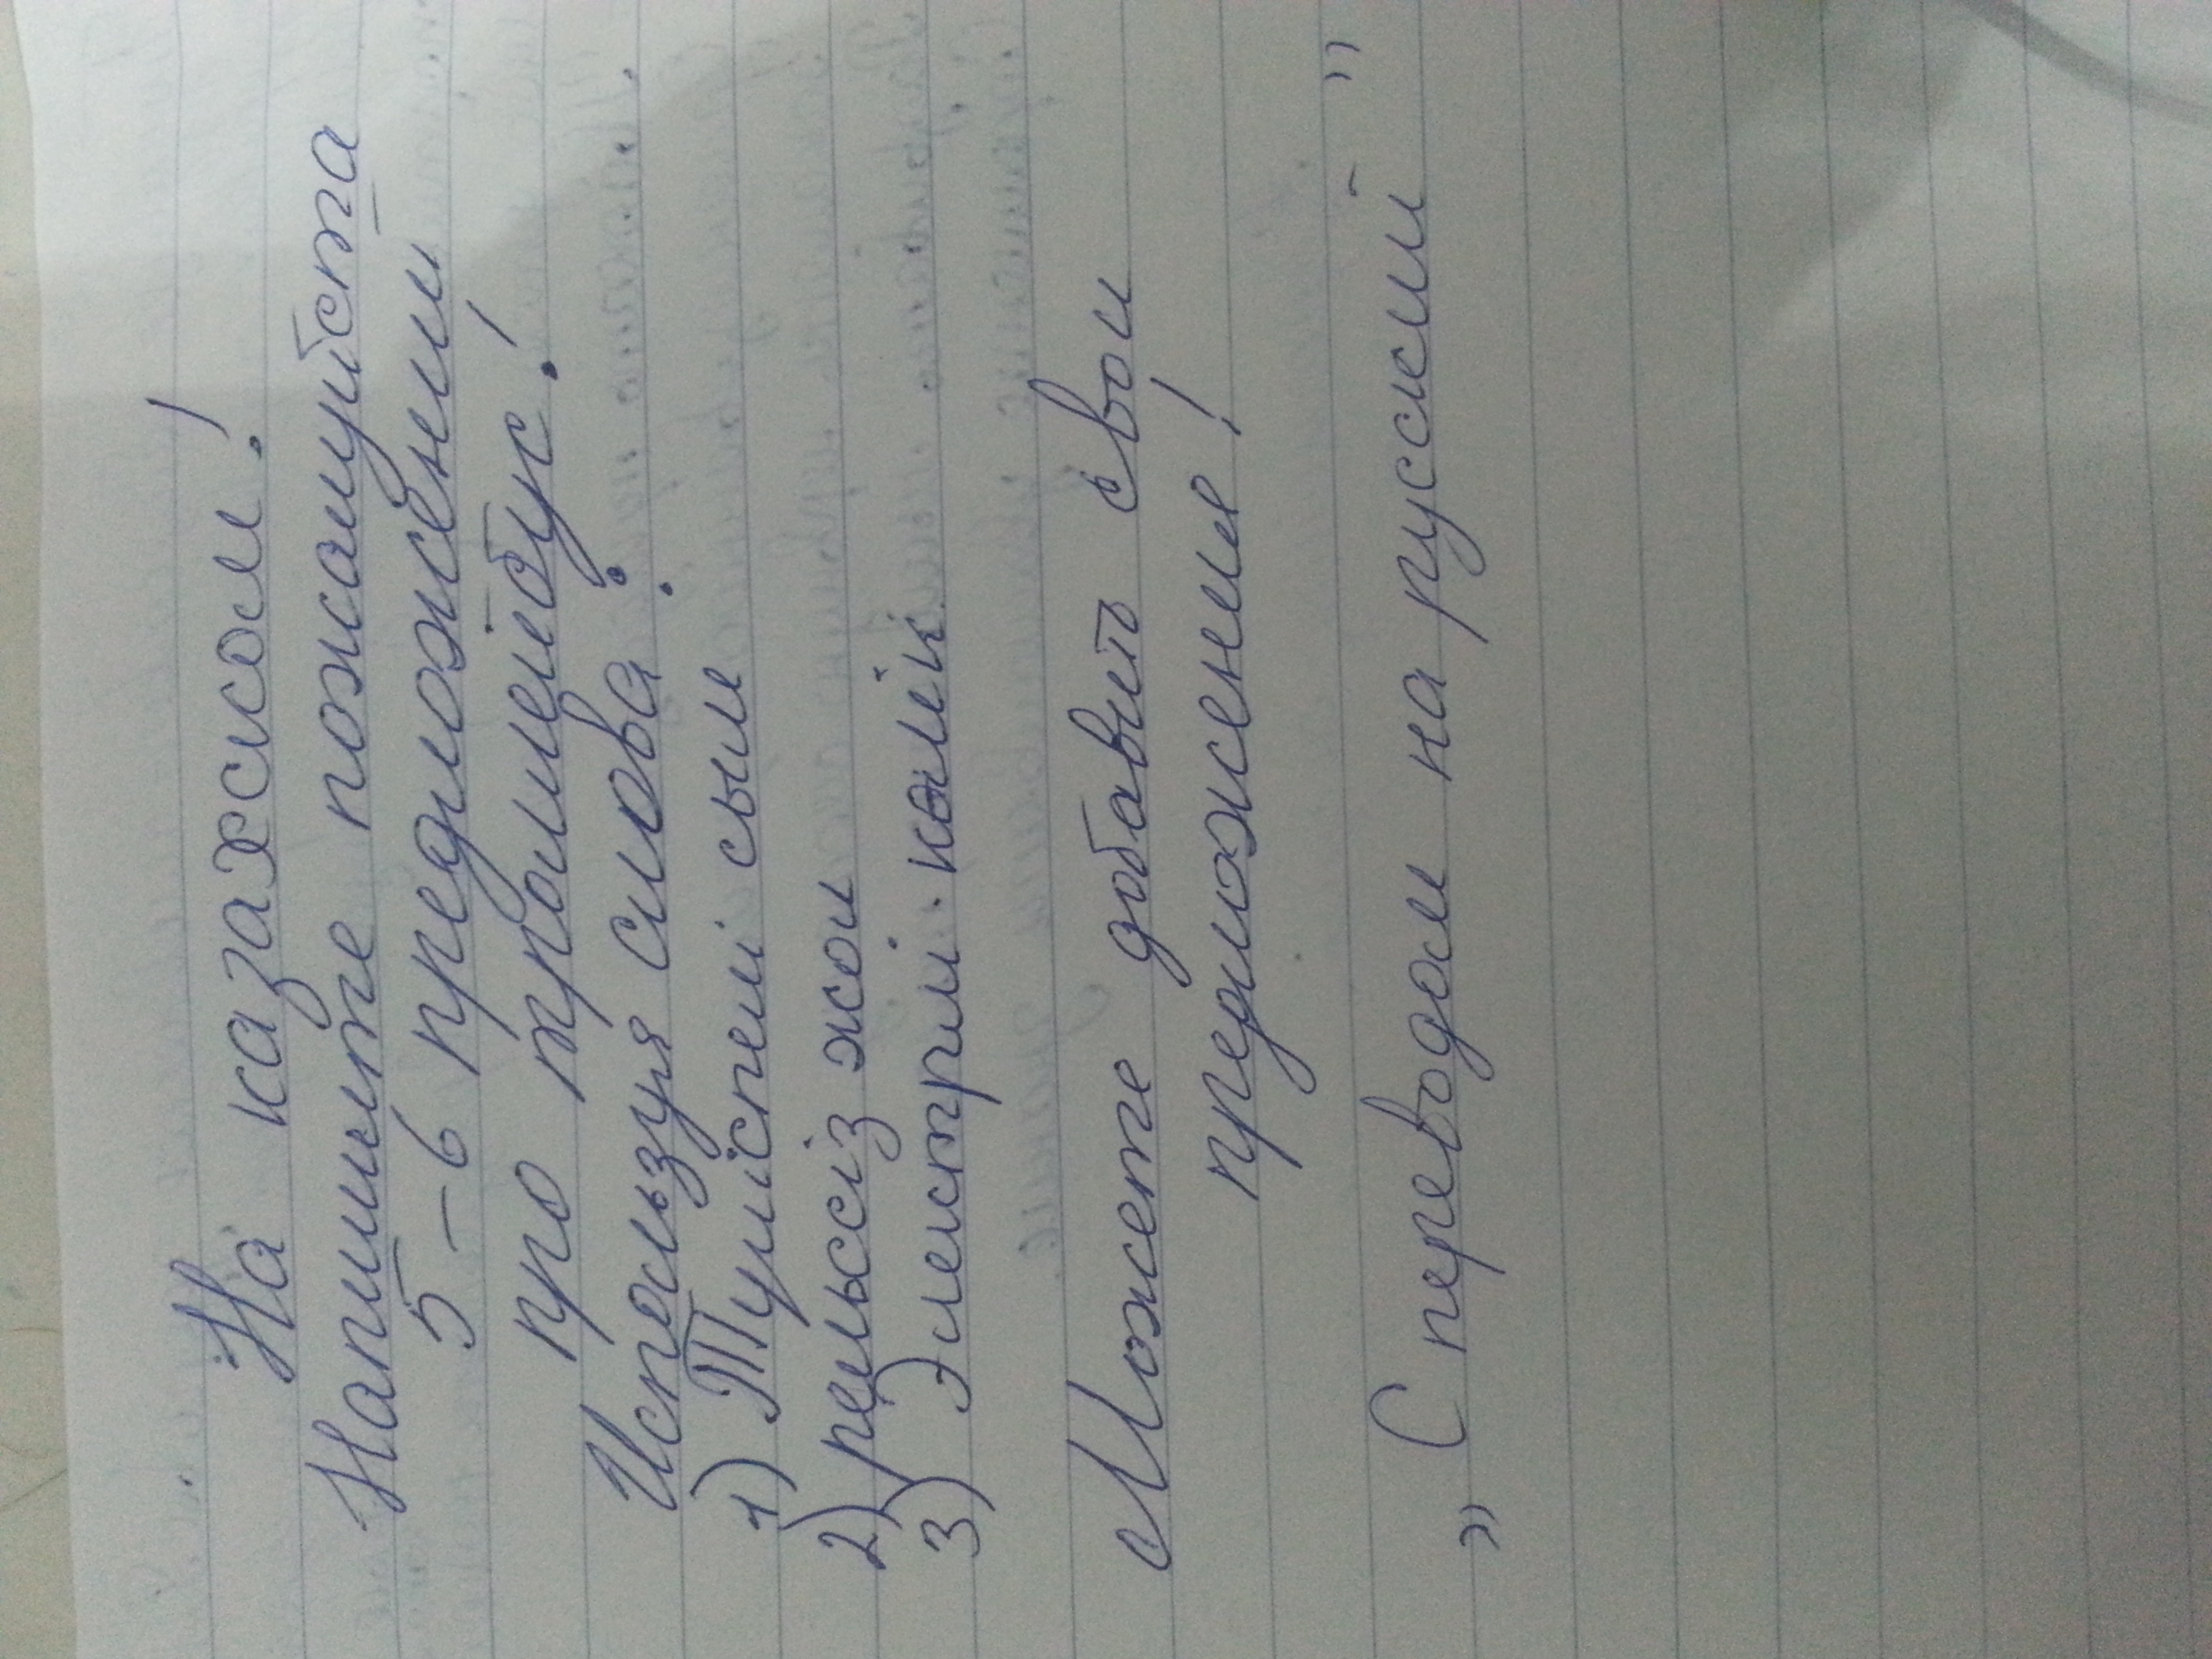 На казахском!
Напишите пожалуйста
5-6 предложении
про троллейбус!
Используя слова:
1) Түйіспелі сым
2) рельссіз жол
3) Электрлі көлік
Можете добавить свои
предложение!
"С переводом на русский"